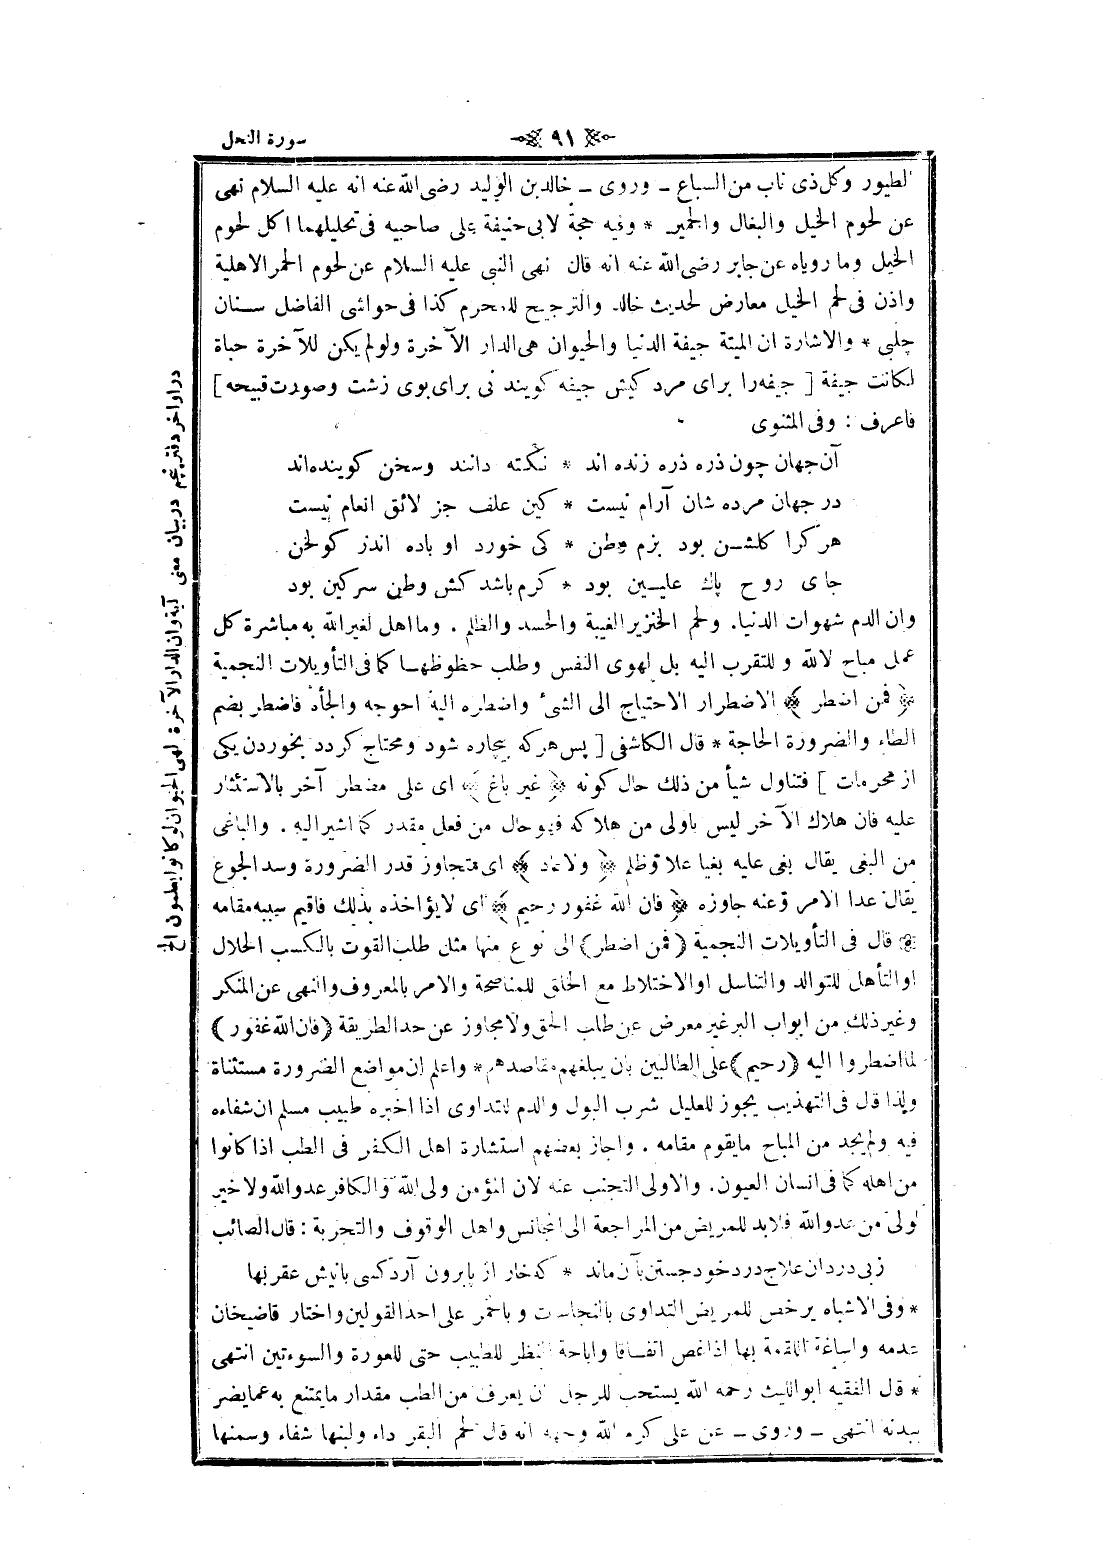 سورة النحل
٩١
الطيور وكل ذى ناب من السباع ـ وروى ـ خالد بن الوليد رضى الله عنه انه عليه السلام نهى
عن لحوم الخيل والبغال والحمير * وفيه حجة لابى حنيفة على صاحبيه فى تحليلهما اكل لحوم
الخيل وما روياه عن جابر رضى الله عنه انه قال نهى النبى عليه السلام عن لحوم الحمر الاهلية
واذن فى لحم الخيل معارض لحديث خالد والترجيح للمحرم كذا فى حواشى الفاضل سنان
چلبى * والاشارة ان الميتة جيفة الدنيا والحيوان هى الدار الآخرة ولولم يكن للآخرة حياة
لكانت جيفة [ جيفه را براى مرد كيش جيفه كويند نى براى بوى زشت وصورت قبيحه ]
فاعرف : وفى المثنوى
آن جهان چون ذره ذره زنده اند * نكته دانند وسخن كوينده اند
در جهان مرده شان آرام نيست * كين علف جز لائق انعام نيست
هر كرا كلشن بود بزم وطن * كى خورد او باده اندر كولخن
جاى روح پاك عليين بود * كرم باشد كش وطن سركين بود
وان الدم شهوات الدنيا. ولحم الخنزير الغيبة والحسد والظلم . وما اهل لغير الله به مباشرة كل
عمل مباح لالله و للتقرب اليه بل لهوى النفس وطلب حظوظها كما فى التأويلات النجمية
﴿ فمن اضطر ﴾ الاضطرار الاحتياج الى الشئ واضطره اليه احوجه والجأه فاضطر بضم
الطاء والضرورة الحاجة * قال الكاشفى [ پس هركه بيچاره شود ومحتاج كردد بخوردن يكى
از محرمات ] فتناول شيأ من ذلك حال كونه ﴿ غير باغ ﴾ اى على مضطر آخر بالاستئثار
عليه فان هلاك الآخر ليس باولى من هلاكه فهو حال من فعل مقدر كما اشير اليه . والباغى
من البغى يقال بغى عليه بغيا علا وظلم ﴿ ولا عاد ﴾ اى متجاوز قدر الضرورة وسد الجوع
يقال عدا الامر وعنه جاوزه ﴿ فان الله غفور رحيم ﴾ اى لايؤاخذه بذلك فاقيم سببه مقامه
* قال فى التأويلات النجمية (فمن اضطر) الى نوع منها مثل طلب القوت بالكسب الحلال
اوالتأهل للتوالد والتناسل اوالاختلاط مع الخلق للمناصحة والامر بالمعروف والنهى عن المنكر
وغير ذلك من ابواب البر غير معرض عن طلب الحق ولا مجاوز عن حد الطريقة (فان الله غفور)
لما اضطروا اليه (رحيم) على الطالبين بان يبلغهم مقاصدهم * واعلم ان مواضع الضرورة مستثناة
ولذا قال فى التهذيب يجوز للعليل شرب البول والدم للتداوى اذا اخبره طبيب مسلم ان شفاءه
فيه ولم يجد من المباح مايقوم مقامه . واجاز بعضهم استشارة اهل الكفر فى الطب اذا كانوا
من اهله كما فى انسان العيون. والاولى التجنب عنه لان المؤمن ولى الله والكافر عدو الله ولا خير
لولى من عدو الله فلابد للمريض من المراجعة الى المجانس واهل الوقوف والتجربة : قال الصائب
زبى دردان علاج درد خود جستن بآن ماند * كه خار از پا برون آرد كسى با نيش عقربها
* وفى الاشباه يرخص للمريض التداوى بالنجاسات و بالخمر على احد القولين واختار قاضيخان
عدمه واساغة اللقمة بها اذا غص اتفاقا واباحة النظر للطبيب حتى للعورة والسوءتين انتهى
* قال الفقيه ابوالليث رحمه الله يستحب للرجل ان يعرف من الطب مقدار مايمتنع به عما يضر
ببدنه انتهى ـ وروى ـ عن على كرم الله وجهه انه قال لحم البقر داء ولبنها شفاء وسمنها
در اواخر دفتر پنجم در بيان معنى آية وان الدار الآخرة لهى الحيوان لو كانوا يعلمون الخ